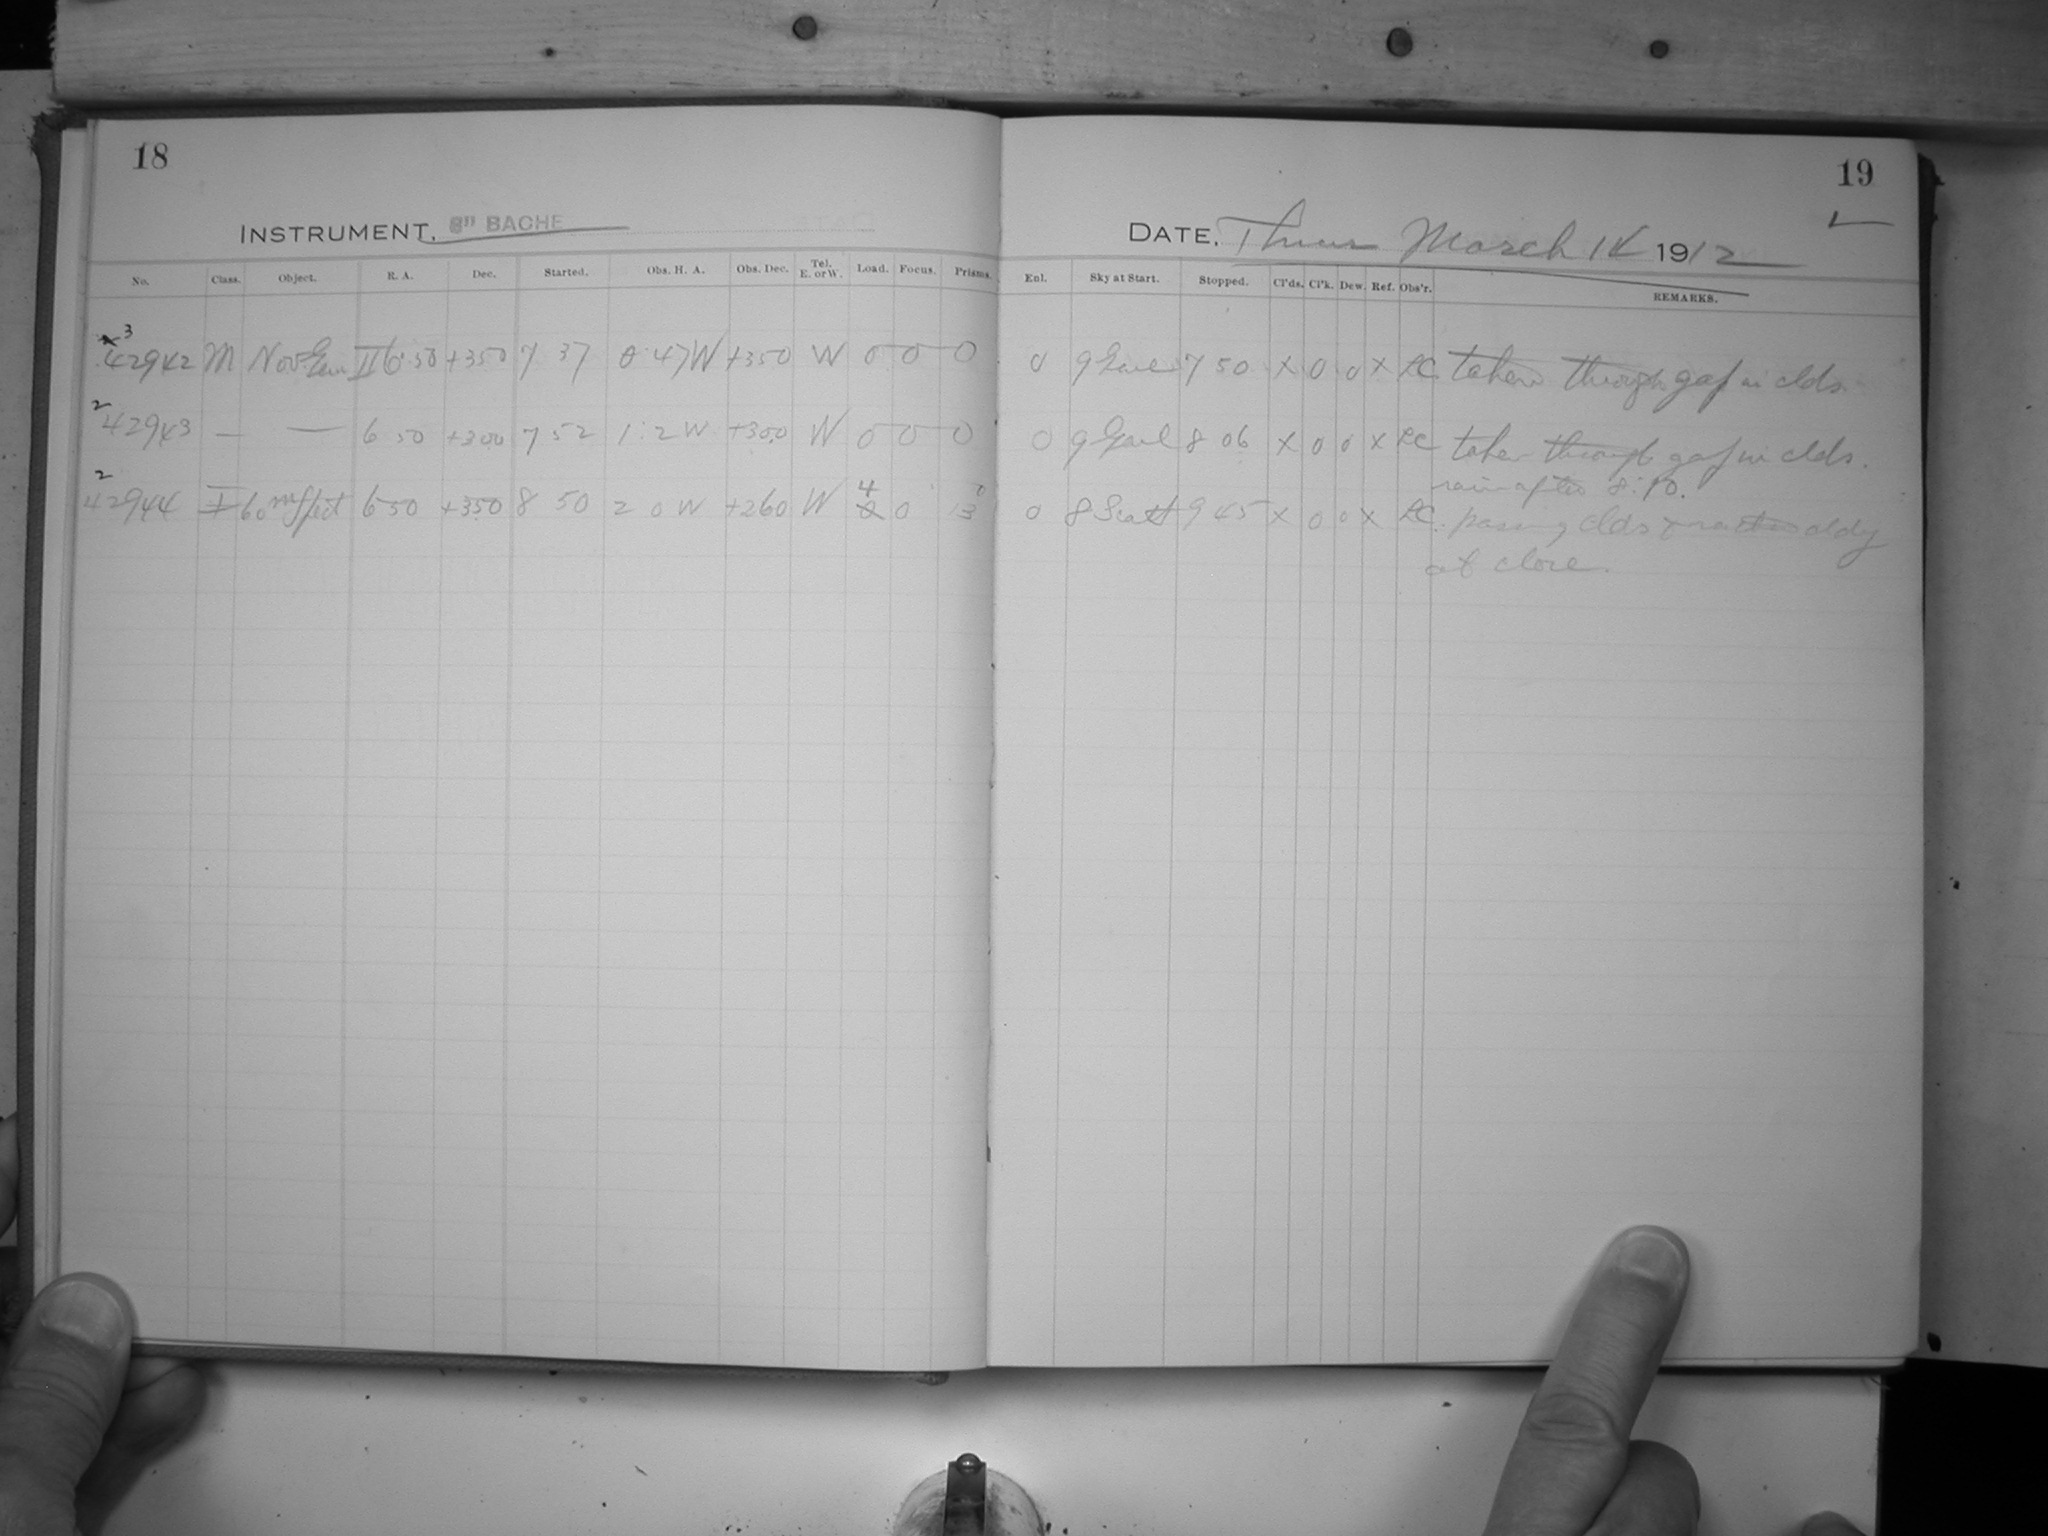 18
INSTRUMENT, 8" BACHE
No. Class. Object. R. A. Dec. Started. Obs. H. A. Obs. Dec. Tel. E. or W. Load. Focus. Prisms.
3
42942 M Nov Gem II 6 50 +350 7 37 0 47 W +350 W 0 0 0
2
42943 — — 6 50 +300 7 52 1 2 W +300 W 0 0 0
2
42944 I 60 m Spect 6 50 +350 8 50 2 0 W +260 W 4 0
19
DATE, Thurs March 14 1912
Enl. Sky at Start. Stopped. Cl'ds. Cl'k. Dew. Ref. Obs'r. REMARKS.
0 9 7 50 x 0 0 x RC taken through gap in clds.
0 9 8 06 x 0 0 x RC taken through gap in clds.
rain after 8:10.
0 8 Scatt 9 45 x 0 0 x RC. passing clds cldy
at close.